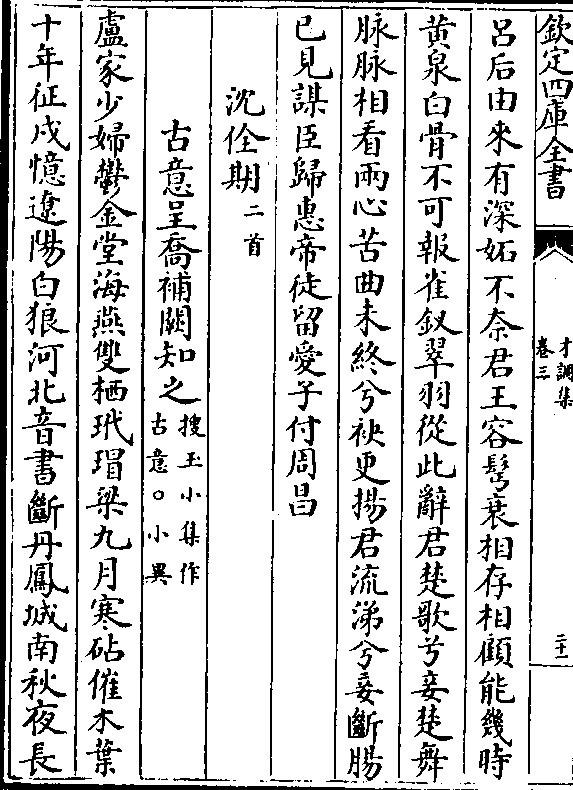 欽定四庫全書
才調集
卷三
二十一
呂后由來有深妬不奈君王容髩衰相存相顧能幾時
黄泉白骨不可報雀釵翠羽從此辭君楚歌兮妾楚舞
脉脉相看兩心苦曲未終兮袂更揚君流涕兮妾斷腸
已見謀臣歸惠帝徒留愛子付周昌
沈佺期二首
古意呈喬補闕知之搜玉小集作古意○小異
盧家少婦鬱金堂海燕雙栖玳瑁梁九月寒砧催木葉
十年征戍憶遼陽白狼河北音書斷丹鳳城南秋夜長